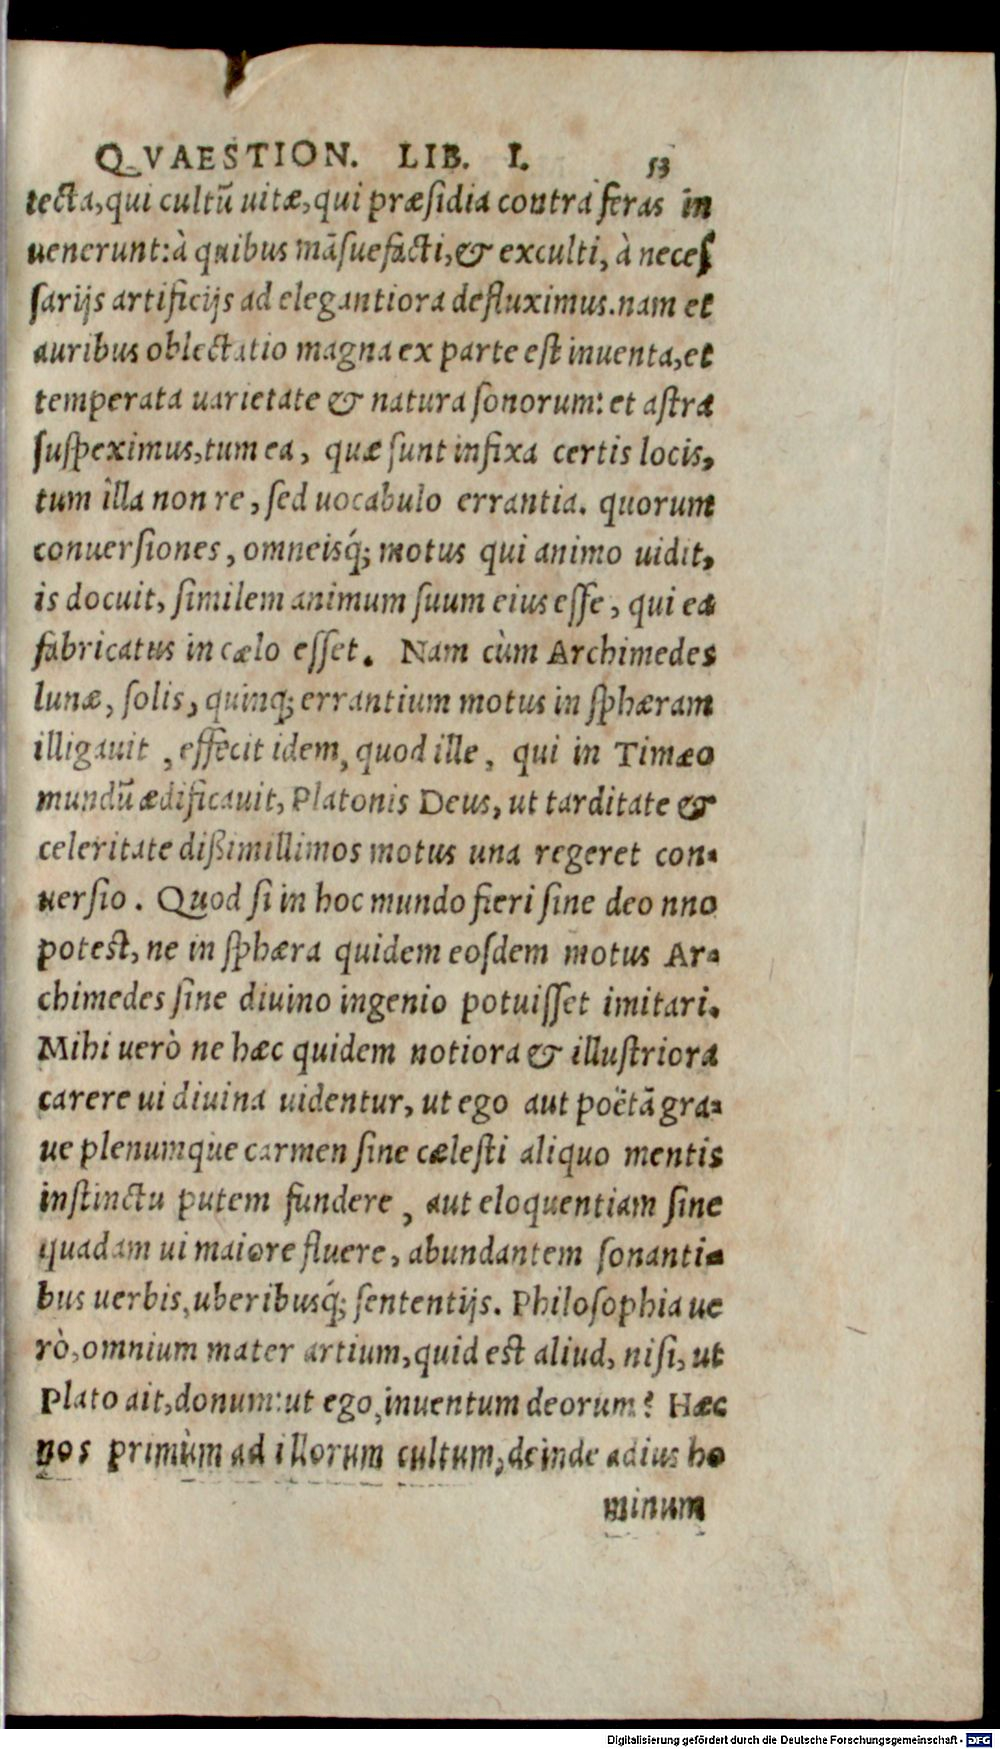 QVAESTION. LIB. I. 53
tecta, qui cultū uitæ, qui præsidia contra feras in
uenerunt: à quibus māsuefacti, & exculti, à neces
sarijs artificijs ad elegantiora defluximus. nam et
auribus oblectatio magna ex parte est inuenta, et
temperata uarietate & natura sonorum: et astra
suspeximus, tum ea, quæ sunt infixa certis locis,
tum illa non re, sed uocabulo errantia. quorum
conuersiones, omneisq́; motus qui animo uidit,
is docuit, similem animum suum eius esse, qui ea
fabricatus in cælo esset. Nam cùm Archimedes
lunæ, solis, quinq; errantium motus in sphæram
illigauit, effecit idem, quod ille, qui in Timæo
mundū ædificauit, Platonis Deus, ut tarditate &
celeritate dißimillimos motus una regeret con-
uersio. Quod si in hoc mundo fieri sine deo nno
potest, ne in sphæra quidem eosdem motus Ar-
chimedes sine diuino ingenio potuisset imitari.
Mihi uerò ne hæc quidem notiora & illustriora
carere ui diuina uidentur, ut ego aut poëtā gra-
ue plenumque carmen sine cælesti aliquo mentis
instinctu putem fundere, aut eloquentiam sine
quadam ui maiore fluere, abundantem sonanti-
bus uerbis, uberibusq́; sententijs. Philosophia ue
rò, omnium mater artium, quid est aliud, nisi, ut
Plato ait, donum: ut ego, inuentum deorum? Hæc
nos primùm ad illorum cultum, deinde ad ius ho
minum
Digitalisierung gefördert durch die Deutsche Forschungsgemeinschaft - DFG